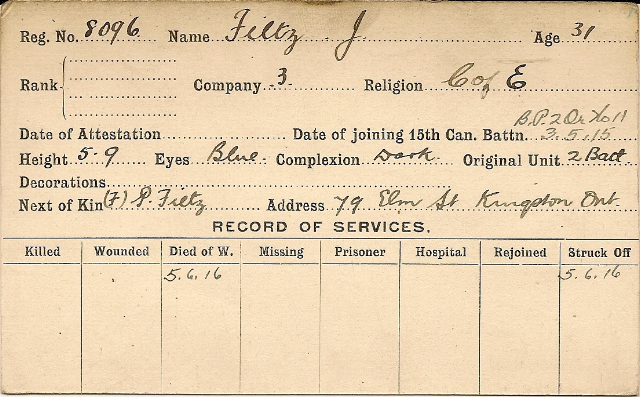 Reg. No. 8096 Name Filtz J Age 31
Rank Company 3 Religion C of E
B.P.2 Or No 11
Date of Attestation Date of joining 15th Can. Battn. 3.5.15
Height 5-9 Eyes Blue. Complexion Dark. Original Unit 2 Batt
Decorations
Next of Kin (F) P. Filtz Address 79 Elm St Kingston Ont.
RECORD OF SERVICES.
Killed Wounded Died of W. Missing Prisoner Hospital Rejoined Struck Off
5.6.16 5.6.16